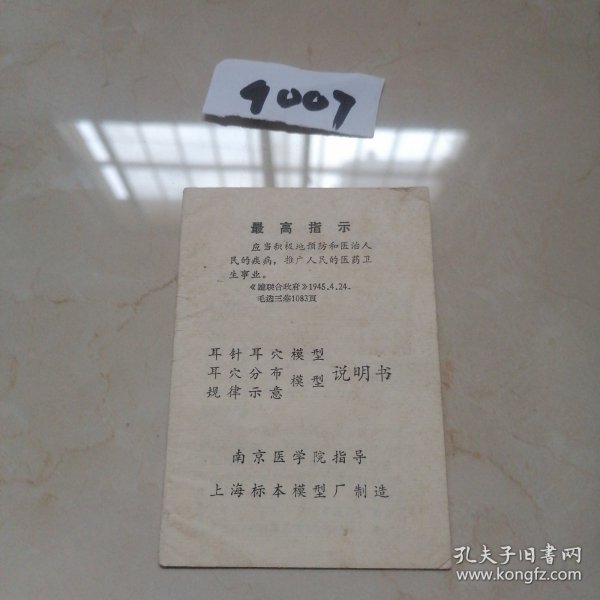 9007
最高指示
应当积极地预防和医治人
民的疾病，推广人民的医药卫
生事业。
《論联合政府》1945.4.24.
毛选三卷1083頁
耳针耳穴模型
耳穴分布
规律示意
模型
说明书
南京医学院指导
上海标本模型厂制造
孔夫子旧书网
www.kongfz.com